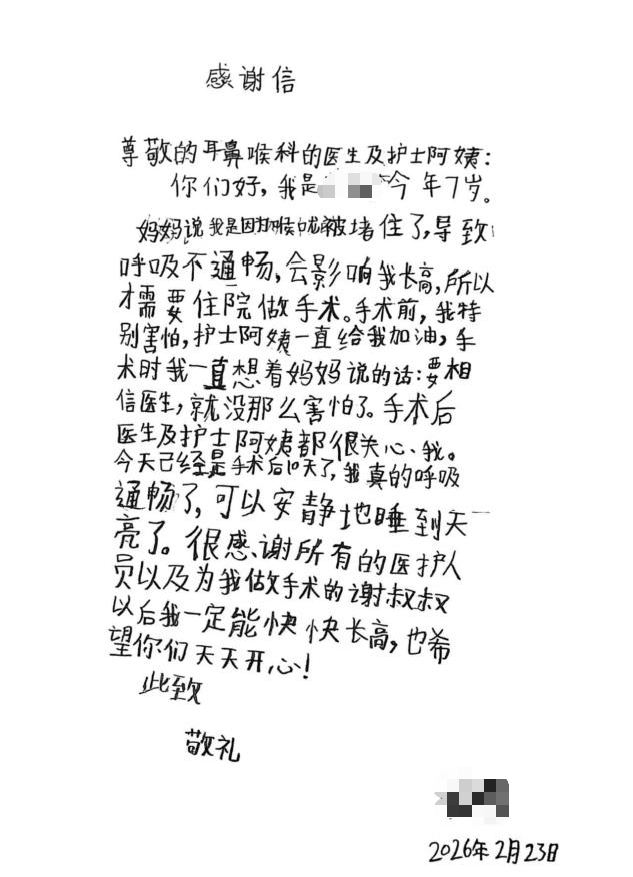 感谢信
尊敬的耳鼻喉科的医生及护士阿姨：
你们好，我是 今年7岁。
妈妈说我是因为喉咙被堵住了，导致
呼吸不通畅，会影响我长高，所以
才需要住院做手术。手术前，我特
别害怕，护士阿姨一直给我加油，手
术时我一直想着妈妈说的话：要相
信医生，就没那么害怕了。手术后
医生及护士阿姨都很关心我。
今天已经是手术后10天了，我真的呼吸
通畅了，可以安静地睡到天
亮了。很感谢所有的医护人
员以及为我做手术的谢叔叔
以后我一定能快快长高，也希
望你们天天开心！
此致
敬礼
2026年2月23日